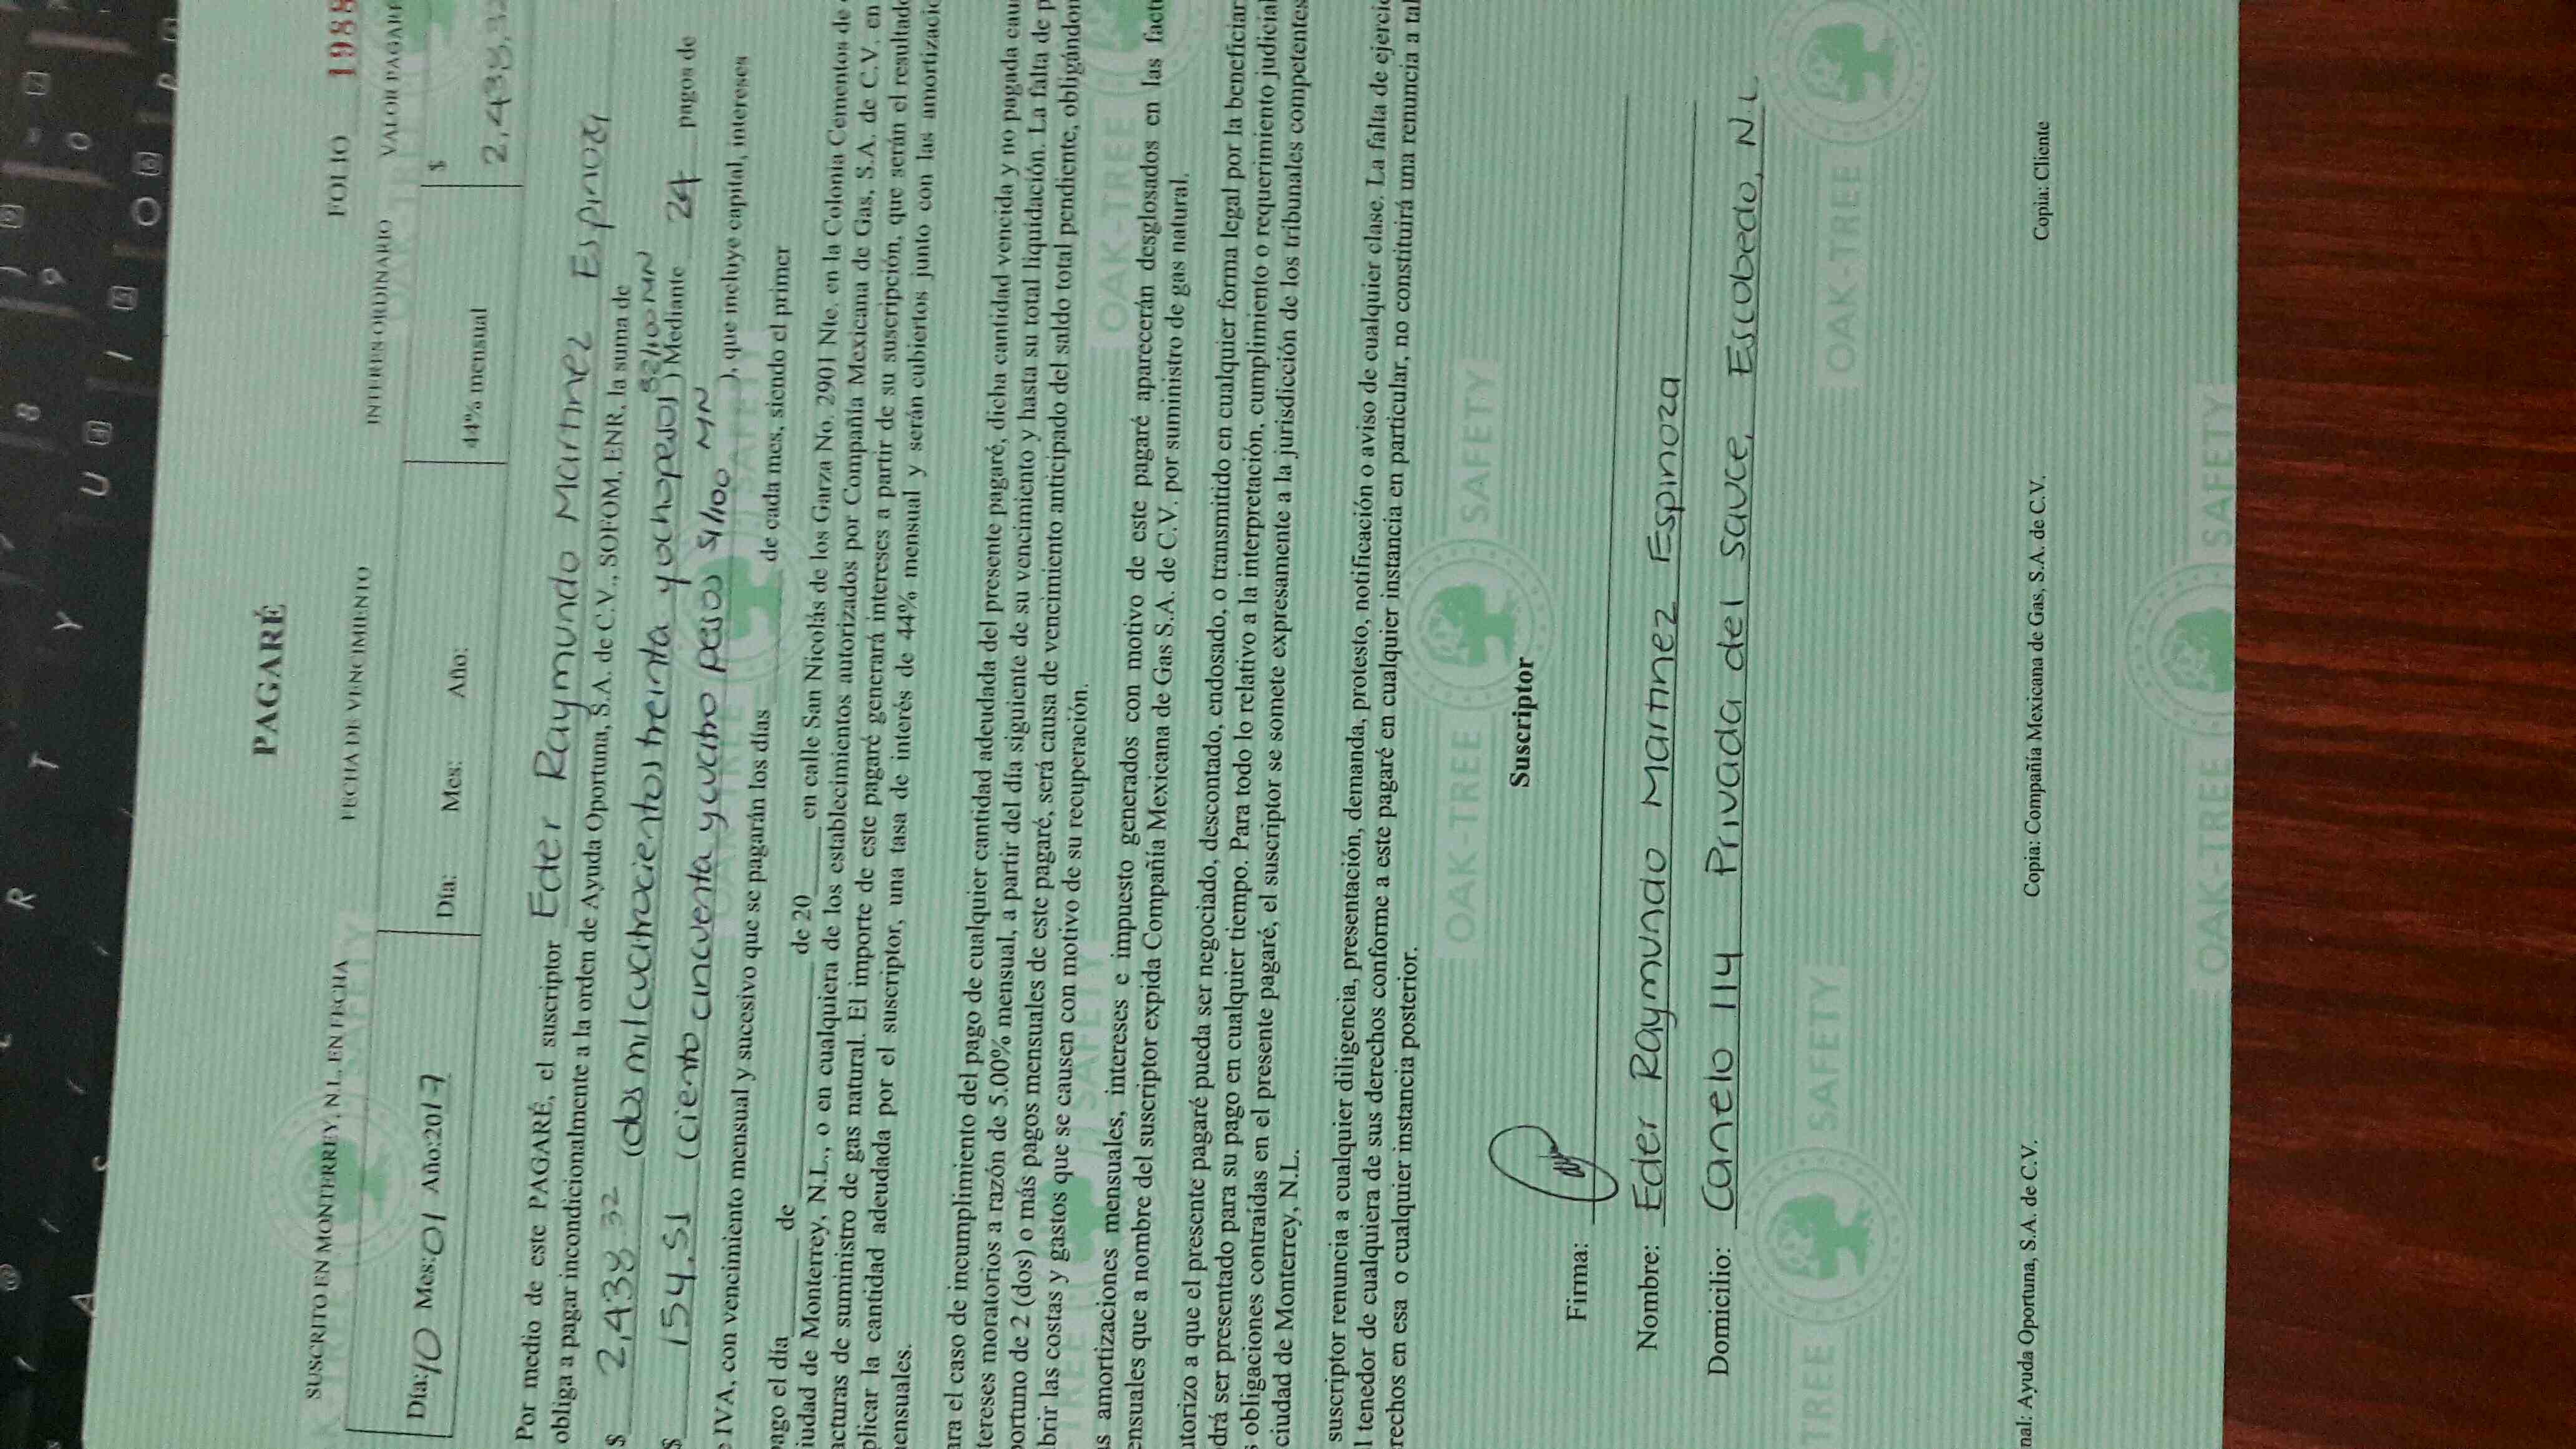 PAGARÉ
FOLIO 1988
SUSCRITO EN MONTERREY, N.L. EN FECHA FECHA DE VENCIMIENTO INTERES ORDINARIO VALOR PAGARÉ
Día: 10 Mes: 01 Año: 2017 Día: Mes: Año: 44% mensual $ 2,438.32
Por medio de este PAGARÉ, el suscriptor Eder Raymundo Martinez Espinoza
obliga a pagar incondicionalmente a la orden de Ayuda Oportuna, S.A. de C.V., SOFOM, ENR, la suma de
$ 2,438.32 (dos mil cuatrocientos treinta y ocho pesos 32/100 MN) Mediante 24 pagos de
$ 154.51 (ciento cincuenta y cuatro pesos 51/100 MN), que incluye capital, intereses
e IVA, con vencimiento mensual y sucesivo que se pagarán los días ____ de cada mes, siendo el primer
pago el día ____ de ____ de 20 ____ en calle San Nicolás de los Garza No. 2901 Nte. en la Colonia Cementos de
ciudad de Monterrey, N.L., o en cualquiera de los establecimientos autorizados por Compañía Mexicana de Gas, S.A. de C.V. en
facturas de suministro de gas natural. El importe de este pagaré generará intereses a partir de su suscripción, que serán el resultado
plicar la cantidad adeudada por el suscriptor, una tasa de interés de 44% mensual y serán cubiertos junto con las amortizacio
mensuales.
ara el caso de incumplimiento del pago de cualquier cantidad adeudada del presente pagaré, dicha cantidad vencida y no pagada cau
tereses moratorios a razón de 5.00% mensual, a partir del día siguiente de su vencimiento y hasta su total liquidación. La falta de p
portuno de 2 (dos) o más pagos mensuales de este pagaré, será causa de vencimiento anticipado del saldo total pendiente, obligándon
brir las costas y gastos que se causen con motivo de su recuperación.
s amortizaciones mensuales, intereses e impuesto generados con motivo de este pagaré aparecerán desglosados en las factu
ensuales que a nombre del suscriptor expida Compañía Mexicana de Gas S.A. de C.V. por suministro de gas natural.
utorizo a que el presente pagaré pueda ser negociado, descontado, endosado, o transmitido en cualquier forma legal por la beneficiar
drá ser presentado para su pago en cualquier tiempo. Para todo lo relativo a la interpretación, cumplimiento o requerimiento judicial
s obligaciones contraídas en el presente pagaré, el suscriptor se somete expresamente a la jurisdicción de los tribunales competentes
ciudad de Monterrey, N.L.
suscriptor renuncia a cualquier diligencia, presentación, demanda, protesto, notificación o aviso de cualquier clase. La falta de ejercic
l tenedor de cualquiera de sus derechos conforme a este pagaré en cualquier instancia en particular, no constituirá una renuncia a tal
rechos en esa o cualquier instancia posterior.
Suscriptor
Firma:
Nombre: Eder Raymundo Martinez Espinoza
Domicilio: Canelo 114 Privada del Sauce, Escobedo, N.L
nal: Ayuda Oportuna, S.A. de C.V. Copia: Compañía Mexicana de Gas, S.A. de C.V. Copia: Cliente